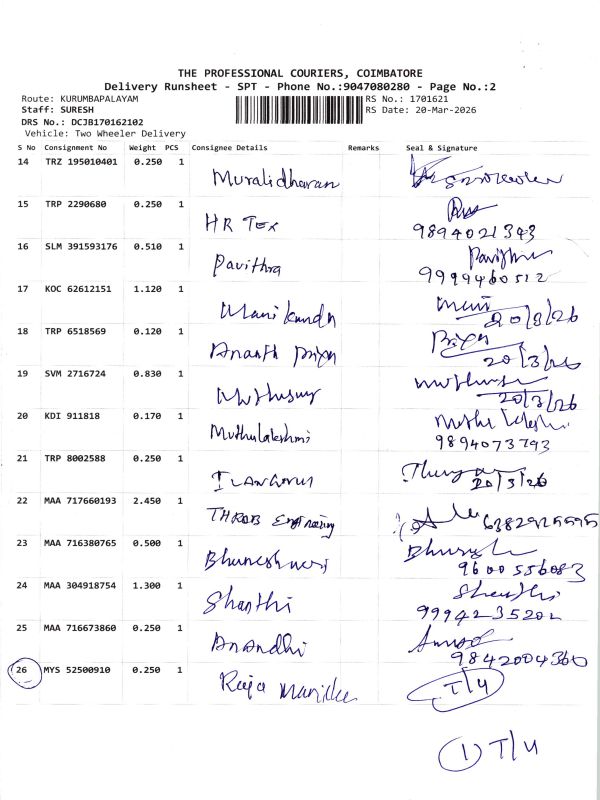 THE PROFESSIONAL COURIERS, COIMBATORE
Delivery Runsheet - SPT - Phone No.:9047080280 - Page No.:2
Route: KURUMBAPALAYAM RS No.: 1701621
Staff: SURESH RS Date: 20-Mar-2026
DRS No.: DCJB170162102
Vehicle: Two Wheeler Delivery
S No Consignment No Weight PCS Consignee Details Remarks Seal & Signature
14 TRZ 195010401 0.250 1
Muralidharan
15 TRP 2290680 0.250 1
HR Tex 9894021343
16 SLM 391593176 0.510 1
Pavithra Pavithra
9999460512
17 KOC 62612151 1.120 1
Manikandn Mani
20/3/26
18 TRP 6518569 0.120 1
Ananth priya Priya
20/3/26
19 SVM 2716724 0.830 1
20/3/26
20 KDI 911818 0.170 1
Muthulakshmi
9894073793
21 TRP 8002588 0.250 1
20/3/26
22 MAA 717660193 2.450 1
Engineering
23 MAA 716380765 0.500 1
Bhuneshwari
9600556083
24 MAA 304918754 1.300 1
Shanthi Shanthi
9994235202
25 MAA 716673860 0.250 1
Anandhi
9842004360
26 MYS 52500910 0.250 1
Raja Manikka T/4
1 T/4